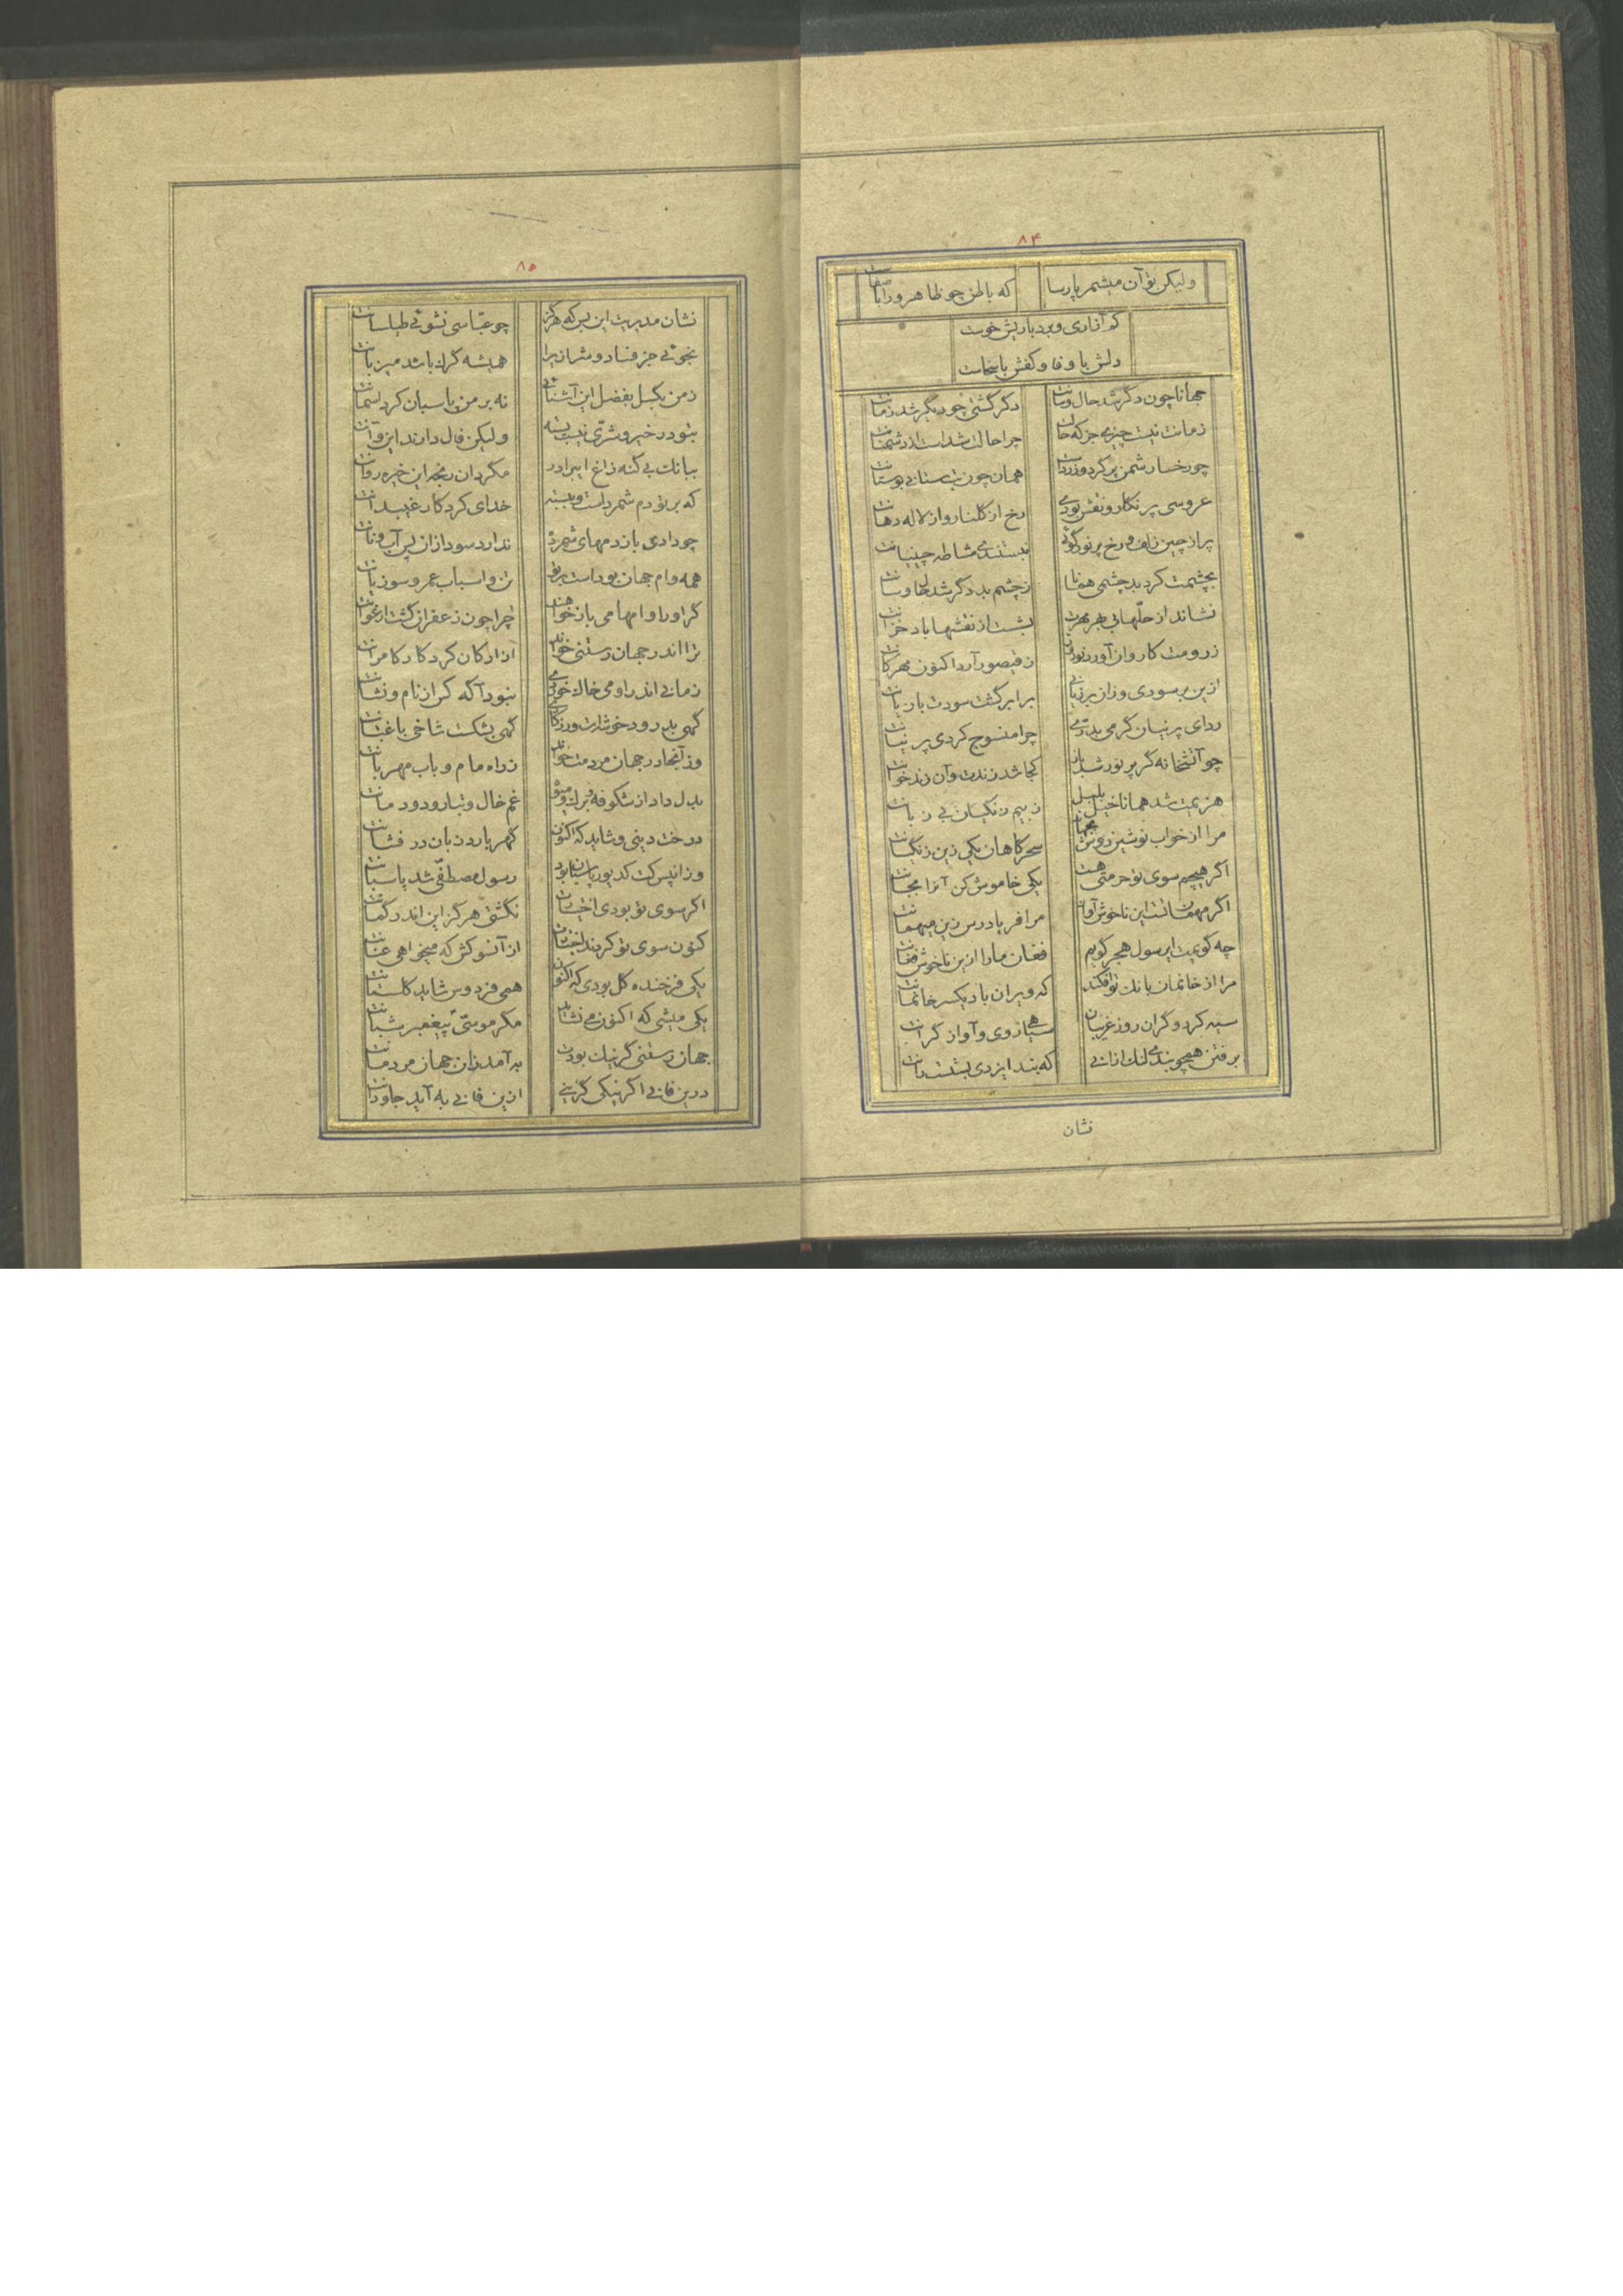 ۸۴
ولیکن تو آن میشمر پارسا که باطن چو ظاهر ورا با صفاست
که آزاری و بردباریش خوست
دلش با وفا و کفش با سخاست
جهانا چون دگر شد حال و سانت دگر گشتی چو دیگر شد زمانت
زمانت نیست چیزی جز که حالت چرا حالت شداست از دشمنانت
چو رخسار شمن پر گرد و زردست همان چون بت ستانی بوستانت
عروسی پر نگار و نقش بودی رخ از گلنار و از لاله دهانت
پر از چین زلف و رخ پر نور گوئی نبستندی مشاطه چینیانت
بچشمت کرد بد چشمی همانا ز چشم بد دگر شد حال و سانت
نشاند از حلهای بهر مهرت بشست از نقشها باد خزانت
ز رومت کاروان آورد نوروز ز فیصور آرد اکنون مهرگانت
ازین بر سودی و زان بر زیانی برابر گشت سودت با زیانت
ردای پرنیان گر می بدری چرا منسوج کردی پرنیانت
چو آتشخانه گر پر نور شد باز کجا شد زندت و آن زندخوانت
هزیمت شد همانا خیل بلبل ز بیم زنگیان بی زبانت
مرا از خواب نوشین دوش بجهاند سحرگاهان یکی زین زنگیانت
اگر هیچم سوی تو حرمتی هست یکی خاموش کن آنرا بجانت
اگر مهمانت است این ناخوش آواز مرا فریاد رس زین میهمانت
چه گویمت ای رسول هجر گویم فغان ما را ازین ناخوش فغانت
مرا از خانمان بانک تو افکند که ویران باد یکسر خانمانت
سیه کرد و گران روز غریبان سیاهی روی و آواز گرانت
برفتن همچو بندی لنک ازانی که بند ایزدی بستست رانت
نشان
۸۵
نشان مدبریت این بس که هرگز چو عباسی نشوئی طیلسانت
نجوئی جز فساد و شر ازیرا همیشه گرگ باشد میزبانت
ز من بگسل بفضل این آشنائی نه بر من پاسبان کرد آسمانت
بتو در خیر و شری نیست بسته ولیکن فال دارند این و آنت
ببانک بی گنه زاغ ای برادر مگردان رنجه این خیره روانت
که بر تو دم شمرداست و ببسته خدای کردگار غیبدانت
چو دادی باز دمهای شمرده ندارد سود ازان پس آب و نانت
همه وام جهان بوداست بر تو تن و اسباب عمر و سوزیانت
گر او را وامها می باز خواهند چرا چون زعفران گشت ارغوانت
ترا اندر جهان رستنی خواند ازادکان کردگار کامرانت
زمانی اندرو می خاک خوردی نبود آگه کس از نام و نشانت
گهی بدرود خوشات ورزگاری گهی بشکست شاخی باغبانت
وز آنجا در جهان مردمت خواند ز راه مام و باب مهربانت
بدل داد از شکوفه و برک و میوش غم خال و تبار و دودمانت
درخت دینی و شاید که اکنون گهر بارد زبان در فشانت
وز آنپس کت کدیور پاسبان بود رسول مصطفی شد پاسبانت
اگر سوی تو بودی اختیارت نگشتی هرگز این اندر گمانت
کنون سوی تو کردند اختیارت از آنسو کش که میخواهی عنانت
یکی فرخنده گل بودی که اکنون همی فردوس شاید گلستانت
یکی میشی که اکنون می نشاید مگر موسی پیغمبر شبانت
جهان رستنی گر نیک بودت به آمد زان جهان مردمانت
درین فانی اگر نیکی گزینی ازین فانی به آید جاودانت